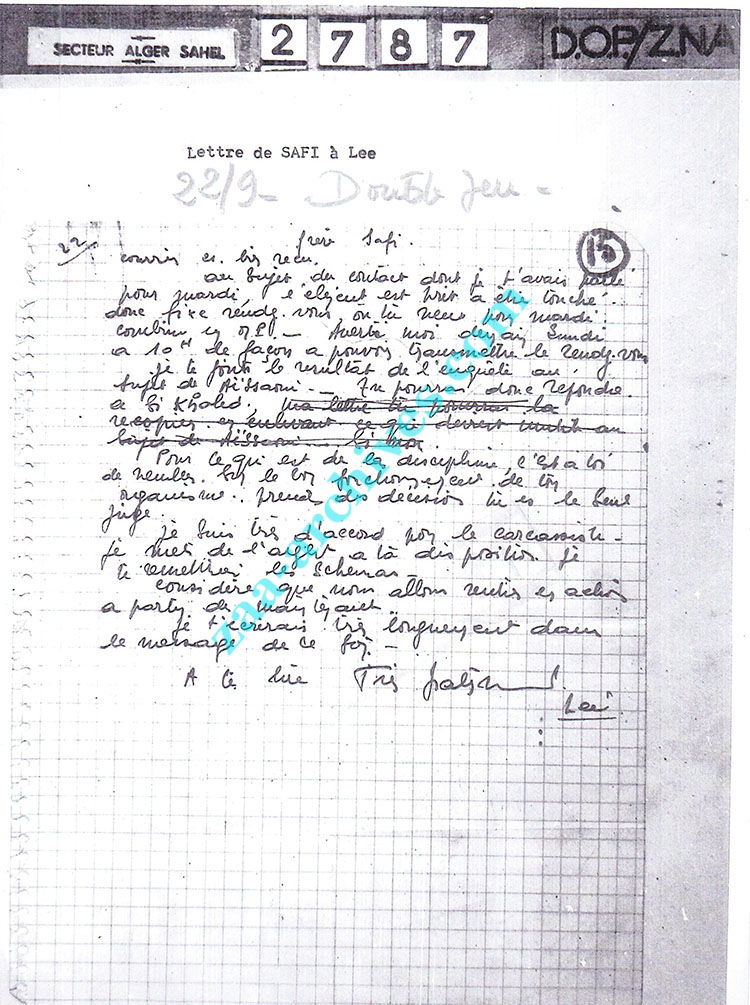 SECTEUR ALGER SAHEL
2 7 8 7
D.O.P/Z.N.A
Lettre de SAFI à Lee
22/9 - Double Jeu -
22/
frère Safi.
15
courrier es. bien recu.
au sujet du contact dont je t'avais parlé
pour mardi, l'element est pret a être touché.
donc fixe rendez-vous, on lieu pour mardi
Avertis moi demain lundi
a 10H de façon a pouvoir transmettre le rendez-vous
je te joins le resultat de l'enquête au
sujet de Aïssaoui. - Tu pourras donc repondre
a Si Khaled, ma lettre tu pourras la
recopier en enlevant ce qui devient inutile au
sujet de Aïssaoui
Pour ce qui est de la discipline, c'est a toi
de veiller sur le bon fonctionnement de ton
organisme. prend des decisions tu es le seul
juge.
je suis très d'accord pour le
je mets de l'argent a ta disposition je
te remettrai les schemas -
considère que nous allons rentrer en action
a partir de maintenant.
je t'ecrirais très longuement dans
le message de ce soir -
A te lire Très frat
Lee
zaa-archives.com